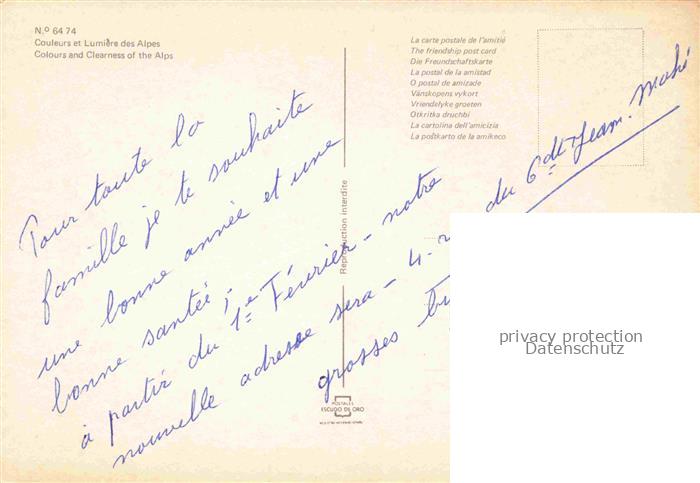 N.º 64 74
Couleurs et Lumière des Alpes
Colours and Clearness of the Alps
La carte postale de l'amitié
The friendship post card
Die Freundschaftskarte
La postal de la amistad
O postal de amizade
Vänskopens vykort
Vriendelyke groeten
Otkritka druchbi
La cartolina dell'amicizia
La poŝtkarto de la amikeco
Reproduction interdite
Pour toute la
famille je te souhaite
une bonne année et une
bonne santée;
à partir du 1e Février - notre
nouvelle adresse sera - 4 - du 6
grosses
POSTALES
ESCUDO DE ORO
privacy protection
Datenschutz